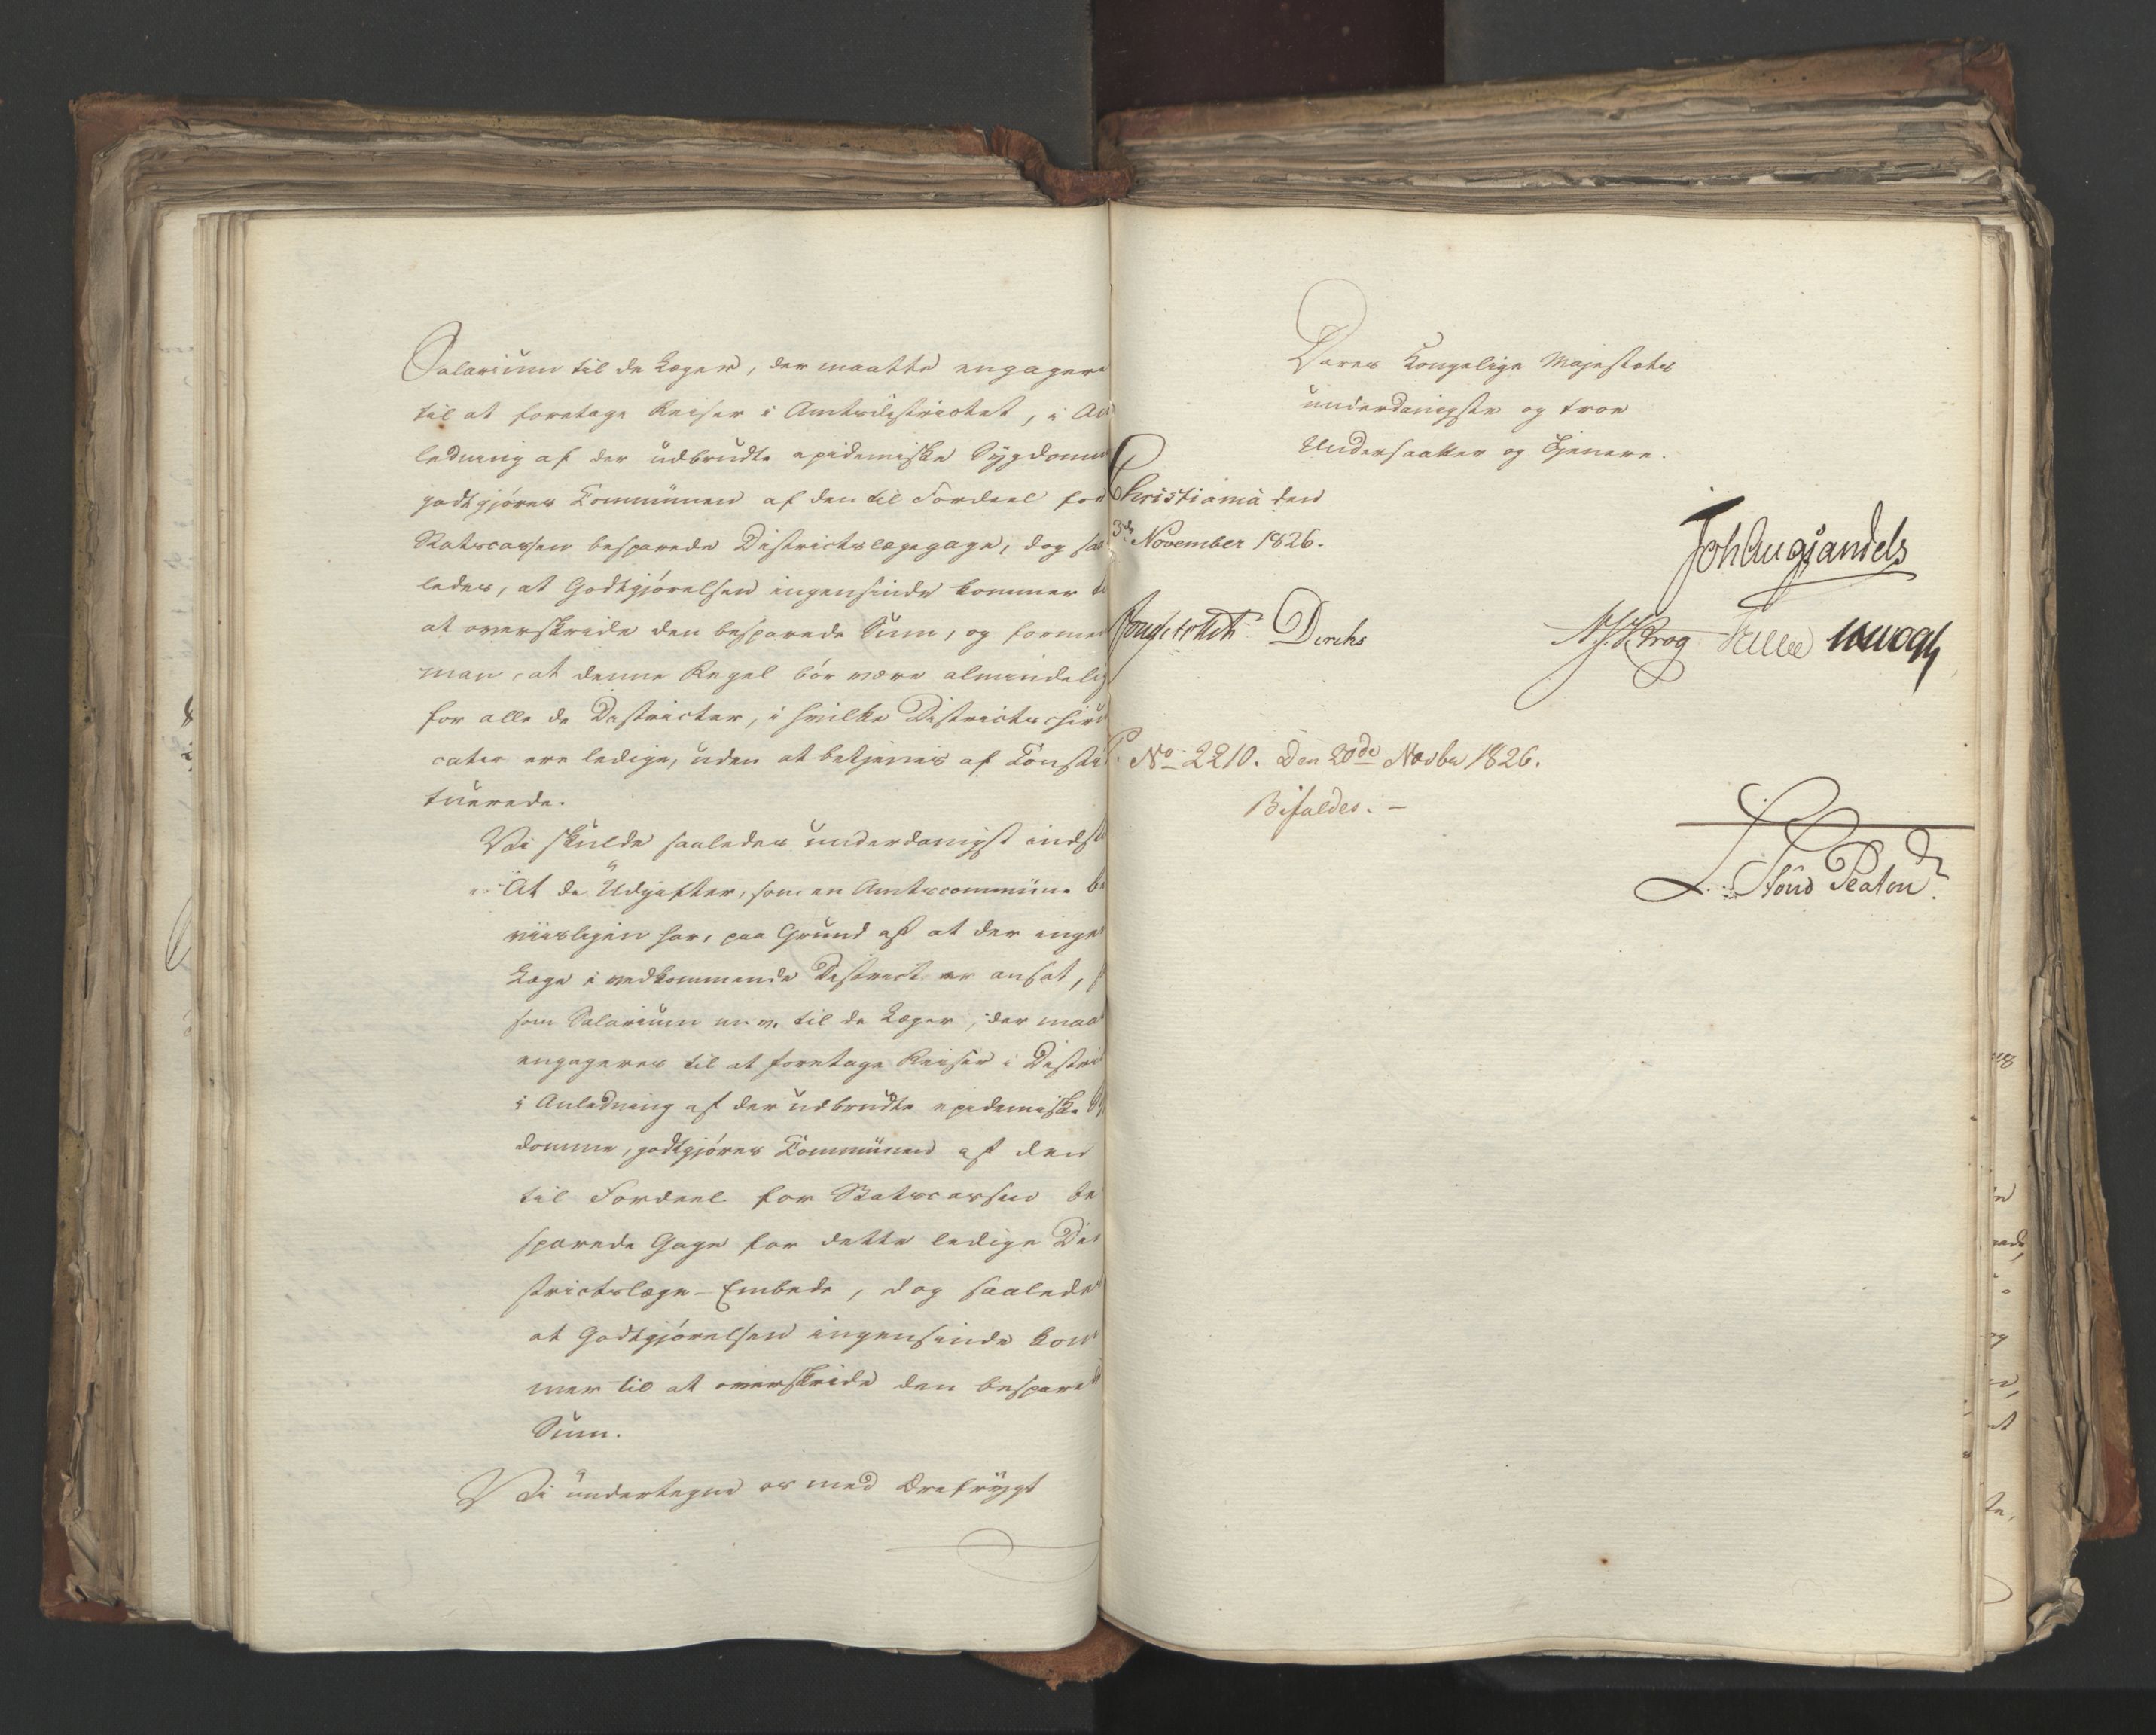 Salarium til de Læger, der maatte engagere
til at foretage Reiser i Amtsdistrictet, i An
ledning af der udbrudte epidemiske Sygdomme
godtgjöres Communen af den til Fordeel for
Statscassen besparede Districtslægegage, dog saa
ledes, at Godtgjörelsen ingensinde kommer til
at overskride den besparede Sum, og formeen
man, at denne Regel bör være almindelig
for alle de Districter, i hvilke Districtschirur
cater ere ledige, uden at betjenes af Consti
tuerede.
Vi skulde saaledes underdanigst indst
At de Udgifter, som en Amtscommune be
viisligen har, paa Grund af at der ingen
Læge i vedkommende District er ansat,
som Salarium m. v. til de Læger, der maa
engageres til at foretage Reiser i Distri
i Anledning af der udbrudte epidemiske Sy
domme, godtgjöres Communen af den
til Fordeel for Statscassen be
sparede Gage for dette ledige Di
strictslæge-Embede, dog saaledes
at Godtgjörelsen ingensinde kom
mer til at overskride den besparede
Sum.
Vi undertegne os med Ærefrygt
Deres Kongelige Majestæts
underdanigste og troe
Undersaatter og Tjenere.
Christiania den
3de November 1826.
Joh Aug Sandels
Diriks
Krog
No 2210. Den 20de Novbr 1826.
Bifaldes. -